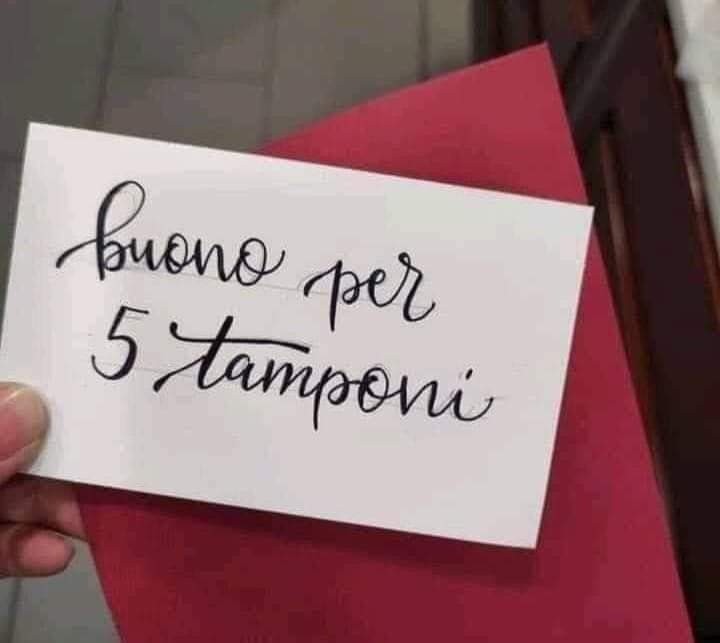 buono per
5 tamponi